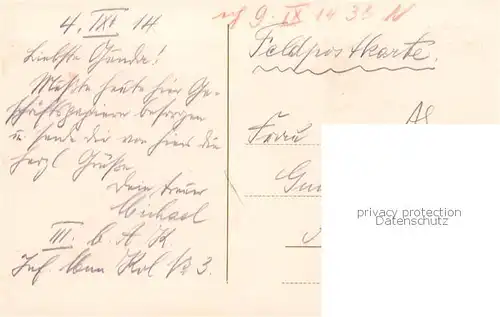 4. IX. 14
Liebste Gunda!
Mußte heute hier Ge-
schäftspapiere besorgen
u. sende dir von hier die
herzl Grüße
Dein treuer
Michael
III. b. A. K.
Inf. Mun Kol No 3.
9. IX 14 3 N
Feldpostkarte.
Frau
Gun
privacy protection
Datenschutz